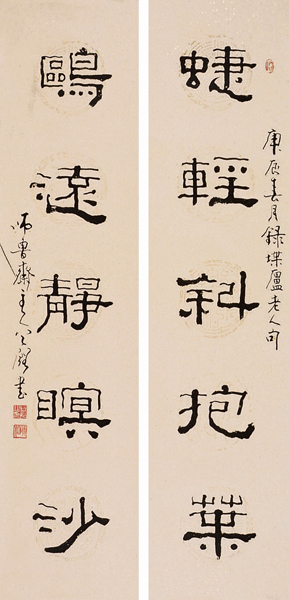 蜨輕斜抱葉
庚辰春月錄堞廬老人句
鷗遠靜瞑沙
師魯齋主人公書